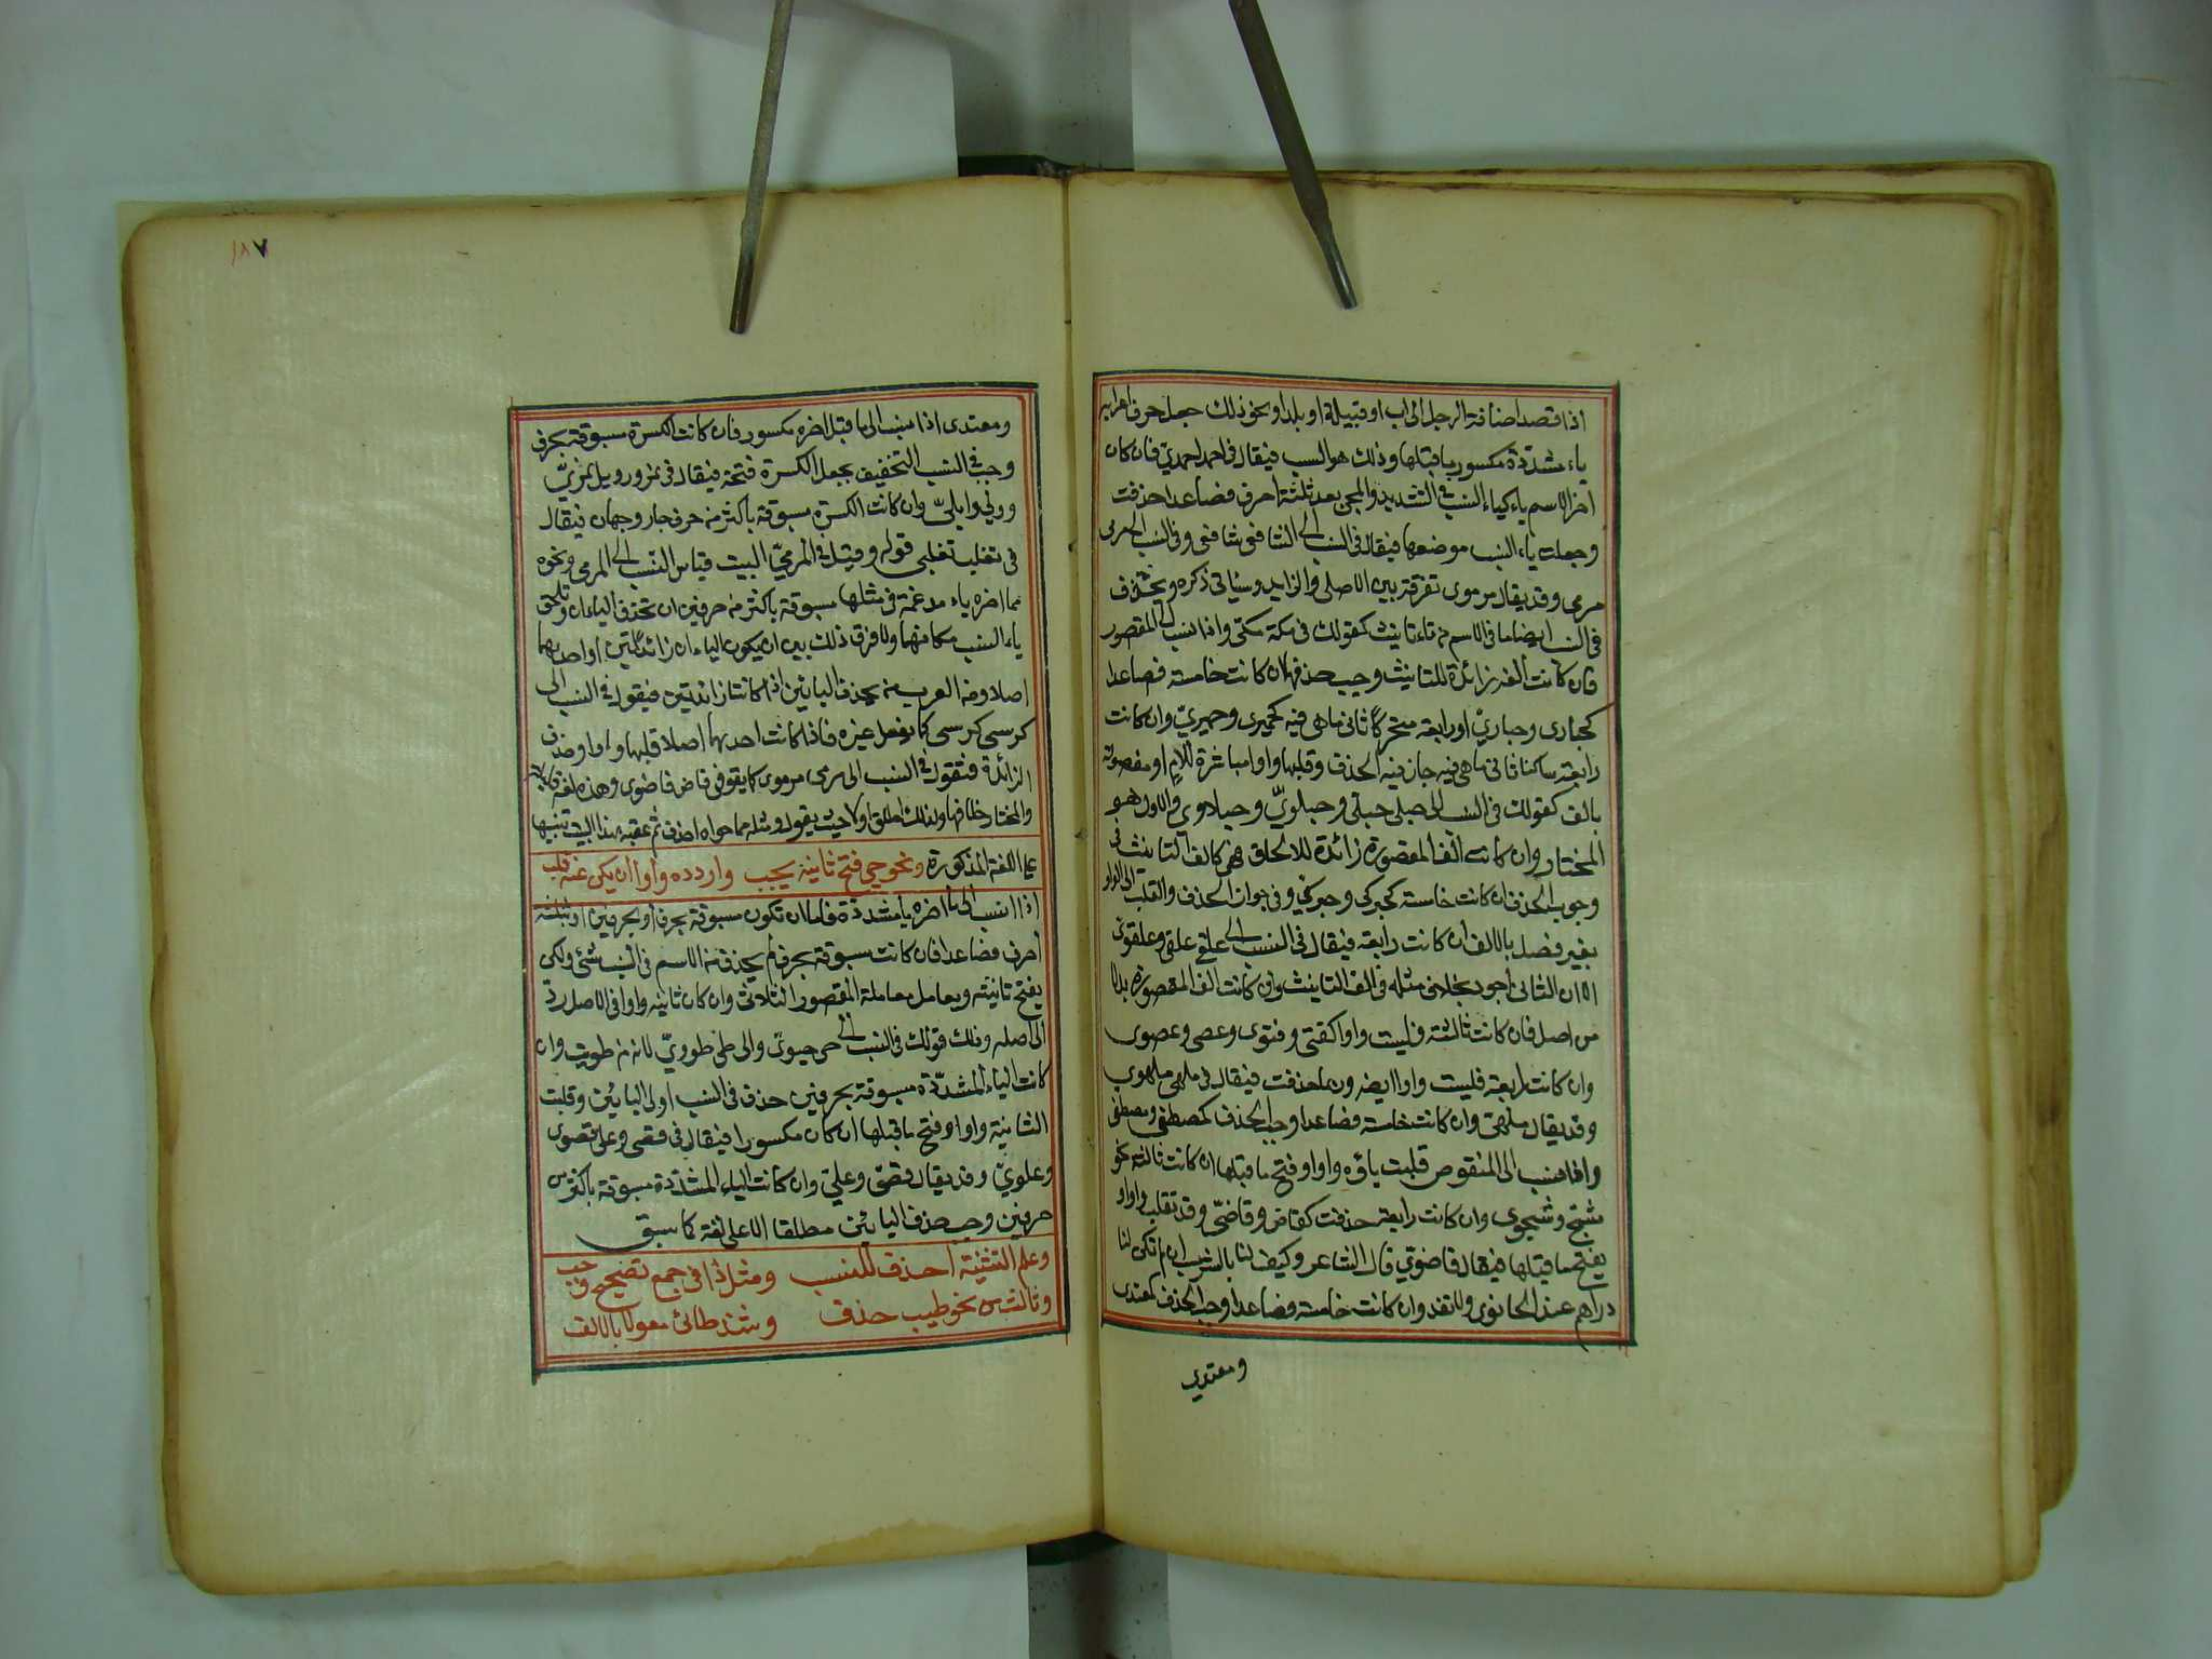 اذا قصد اضافة الرجل الى اب او قبيلة او بلد او نحو ذلك جعل حرف اعرابه
ياء مشددة مكسور ما قبلها وذلك هو النسب فيقال في احمد احمديّ فان كان
اخر الاسم ياء كياء النسب في التشديد والمجئ بعد ثلثة احرف فصاعدا حذفت
وجعلت ياء النسب موضعها فيقال في النسب الى الشافعي شافعي وفي النسب الى مرمى
مرمى وقد يقال مرموى تفرقة بين الاصلى والزايد وسياتى ذكره ويحذف
في النسب ايضا ما في الاسم من تاء تانيث كقولك في مكة مكّى واذا نسب الى المقصور
فان كانت الفه زائدة للتانيث وجب حذفها ان كانت خامسة فصاعدا
كحبارى وحباريّ او رابعة متحركا ثانى ما هى فيه كجمزى وجمزيّ وان كانت
رابعة ساكنا ثانى ما هى فيه جاز فيه الحذف وقلبها واوا مباشرة للام او مفصولة
بالف كقولك في النسب الى حبلى حبلى وحبلويّ وحبلاوى والاول هو
المختار وان كانت الف المقصورة زائدة للالحاق فهى كالف التانيث في
وجوب الحذف ان كانت خامسة كحبركى وحبركي وفي جواز الحذف والقلب الى الواو
بغير فصل بالالف ان كانت رابعة فيقال في النسب الى علقى علقى وعلقوى
الا ان الثانى اجود بخلاف مثله في الف التانيث وان كانت الف المقصورة بدلا
من اصل فان كانت ثالثة قلبت واوا كفتى وفتوى وعصى وعصوى
وان كانت رابعة قلبت واوا ايضا وربما حذفت فيقال في ملهى ملهوى
وقد يقال ملهى وان كانت خامسة فصاعدا وجب الحذف كمصطفى ومصطفى
واذا نسب الى المنقوص قلبت ياؤه واوا وفتح ما قبلها ان كانت ثالثة نحو
شج وشجوى وان كانت رابعة حذفت كقاض وقاضىّ وقد تقلب واوا و
يفتح ما قبلها فيقال قاضويّ قال الشاعر وكيف لنا بالشرب ان لم تكن لنا
دراهم عند الحانوى ولا نقد وان كانت خامسة فصاعدا وجب الحذف كمعتدى
ومعتدي
١٨٧
ومعتدى اذا نسب الى ما قبل اخره مكسور فان كانت الكسرة مسبوقة بحرف
وجب في النسب التخفيف بجعل الكسرة فتحة فيقال في نمر ودئل نمريّ
ودئلى وابلىّ وان كانت الكسرة مسبوقة باكثر من حرف جاز وجهان فيقال
في تغلب تغلبى قوله وقيل في المرميّ البيت قياس النسب الى المرمى ونحوه
مما اخره ياء مدغمة في مثلها مسبوقة باكثر من حرفين ان تحذف الياءان وتلحق
ياء النسب مكانهما ولا فرق في ذلك بين ان يكون الياءان زائدتين او احديهما
اصلا ومن العرب من يحذف اليائين اذا كانتا زائدتين فيقول في النسب الى
كرسى كرسى كما يفعل غيره فاذا كانت احديهما اصلا قلبها واوا وحذف
الزائدة فتقول في النسب الى مرمى مرموى كما يقول في قاض قاضوى وهذه لغة قليلة
والمختار خلافها ولذلك اطلق اولا حيث يقول ومثله مما حواه احذف ثم عقبه بهذا البيت تنبيها
على اللغة المذكورة ونحو حي فتح ثانيه يجب واردده واوا ان يكن عنه قلب
اذا نسب الى ما اخره يا مشددة فاما ان تكون مسبوقة بحرف او بحرفين او ثلثة
احرف فصاعدا فان كانت مسبوقة بحرف لم يحذف من الاسم في النسب شئ ولكن
يفتح ثانيه ويعامل معاملة المقصور الثلاثى وان كان ثانيه واوا في الاصل ردّ
الى اصله وذلك قولك في النسب الى حى حيوىّ والى طى طوويّ لانه من طويت وان
كانت الياء المشدّدة مسبوقة بحرفين حذف في النسب اولى اليائين وقلبت
الثانية واوا وفتح ما قبلها ان كان مكسورا فيقال في قصى وعلى قصوى
وعلويّ وقد يقال قصىّ وعلىّ وان كانت الياء المشدّدة مسبوقة باكثر من
حرفين وجب حذف اليائين مطلقا الا على لغة كما سبق
وعلم التثنية احذف للنسب ومثل ذا في جمع تصحيح وجب
وثالث من نحو طيب حذف وشذ طائى مقولا بالالف